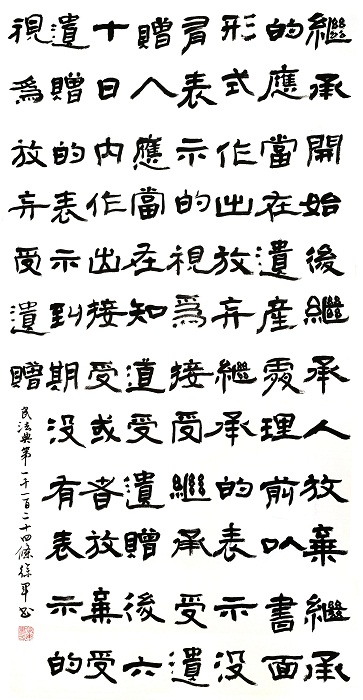 繼承開始後繼承人放棄繼承
的應當在遺產處理前以書面
形式作出放弃繼承的表示没
有表示的視為接受繼承受遺
贈人應當在知道受遺贈後六
十日内作出接受或者放棄受
遺贈的表示到期没有表示的
視為放弃受遺贈
民法典第一千一百二十四條